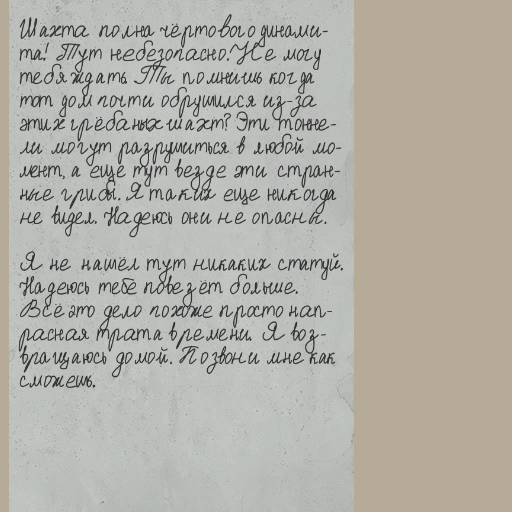 Шахта полна чёртового динами-
та! Тут небезопасно. Не могу
тебя ждать. Ты помнишь когда
тот дом почти обрушился из-за
этих грёбаных шахт? Эти тонне-
ли могут разрушиться в любой мо-
мент, а еще тут везде эти стран-
ные грибы. Я таких еще никогда
не видел. Надеюсь они не опасны.
Я не нашёл тут никаких статуй.
Надеюсь тебе повезёт больше.
Всё это дело похоже просто нап-
расная трата времени. Я воз-
вращаюсь домой. Позвони мне как
сможешь.